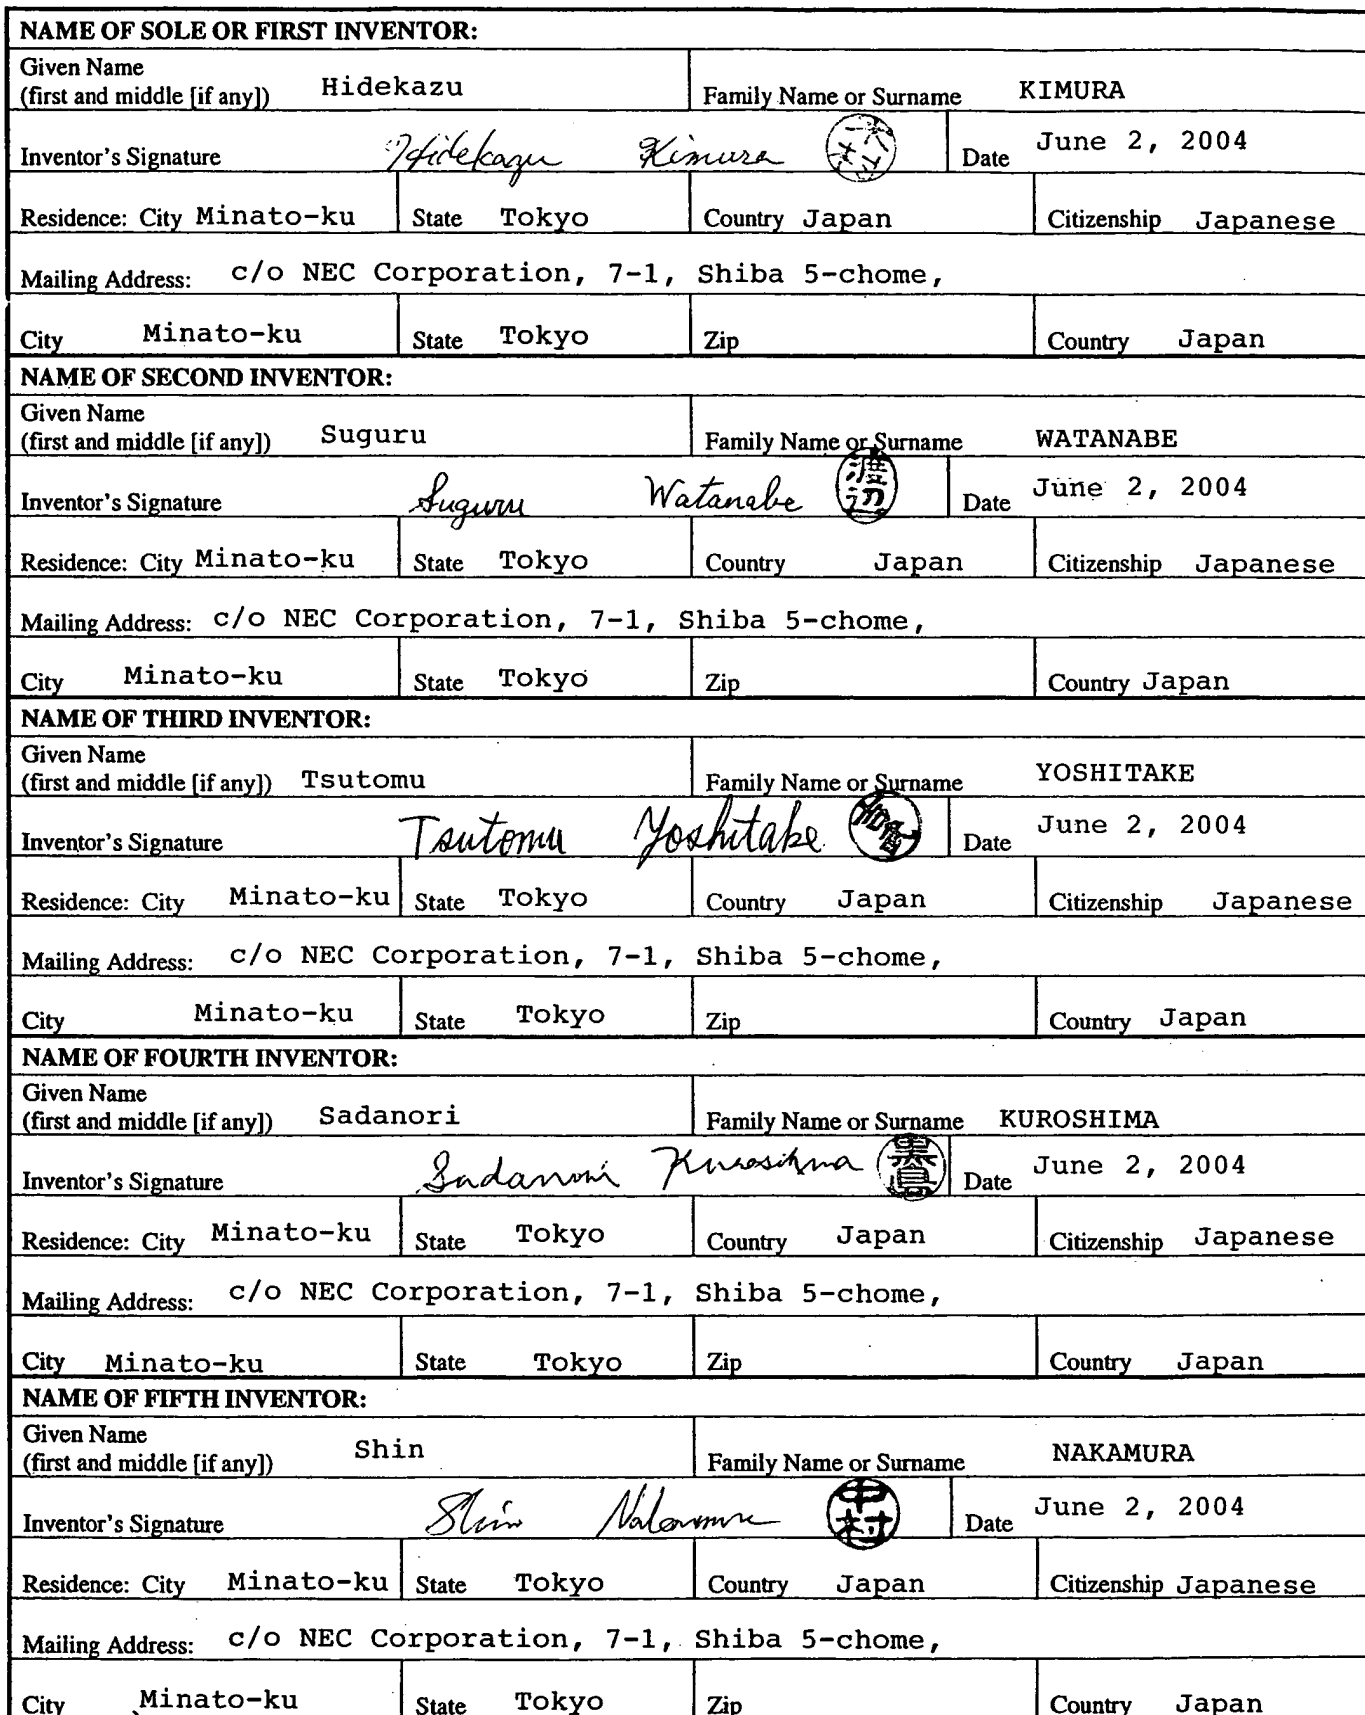 NAME OF SOLE OR FIRST INVENTOR:
Given Name
(first and middle [if any]) Hidekazu Family Name or Surname KIMURA
Inventor's Signature Hidekazu Kimura Date June 2, 2004
Residence: City Minato-ku State Tokyo Country Japan Citizenship Japanese
Mailing Address: c/o NEC Corporation, 7-1, Shiba 5-chome,
City Minato-ku State Tokyo Zip Country Japan
NAME OF SECOND INVENTOR:
Given Name
(first and middle [if any]) Suguru Family Name or Surname WATANABE
Inventor's Signature Suguru Watanabe 渡辺 Date June 2, 2004
Residence: City Minato-ku State Tokyo Country Japan Citizenship Japanese
Mailing Address: c/o NEC Corporation, 7-1, Shiba 5-chome,
City Minato-ku State Tokyo Zip Country Japan
NAME OF THIRD INVENTOR:
Given Name
(first and middle [if any]) Tsutomu Family Name or Surname YOSHITAKE
Inventor's Signature Tsutomu Yoshitake Date June 2, 2004
Residence: City Minato-ku State Tokyo Country Japan Citizenship Japanese
Mailing Address: c/o NEC Corporation, 7-1, Shiba 5-chome,
City Minato-ku State Tokyo Zip Country Japan
NAME OF FOURTH INVENTOR:
Given Name
(first and middle [if any]) Sadanori Family Name or Surname KUROSHIMA
Inventor's Signature Sadanori Kuroshima 黒島 Date June 2, 2004
Residence: City Minato-ku State Tokyo Country Japan Citizenship Japanese
Mailing Address: c/o NEC Corporation, 7-1, Shiba 5-chome,
City Minato-ku State Tokyo Zip Country Japan
NAME OF FIFTH INVENTOR:
Given Name
(first and middle [if any]) Shin Family Name or Surname NAKAMURA
Inventor's Signature Shin Nakamura 中村 Date June 2, 2004
Residence: City Minato-ku State Tokyo Country Japan Citizenship Japanese
Mailing Address: c/o NEC Corporation, 7-1, Shiba 5-chome,
City Minato-ku State Tokyo Zip Country Japan